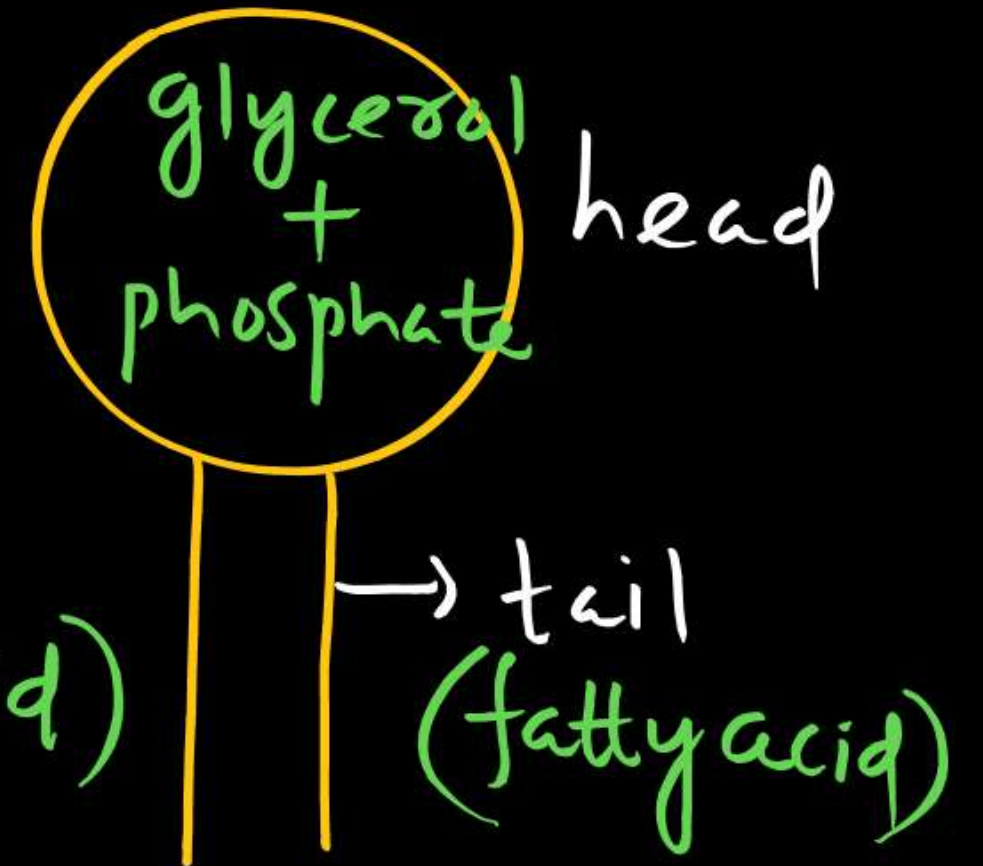 glycerol
+
phosphate
head
tail
d)
(fatty acid)